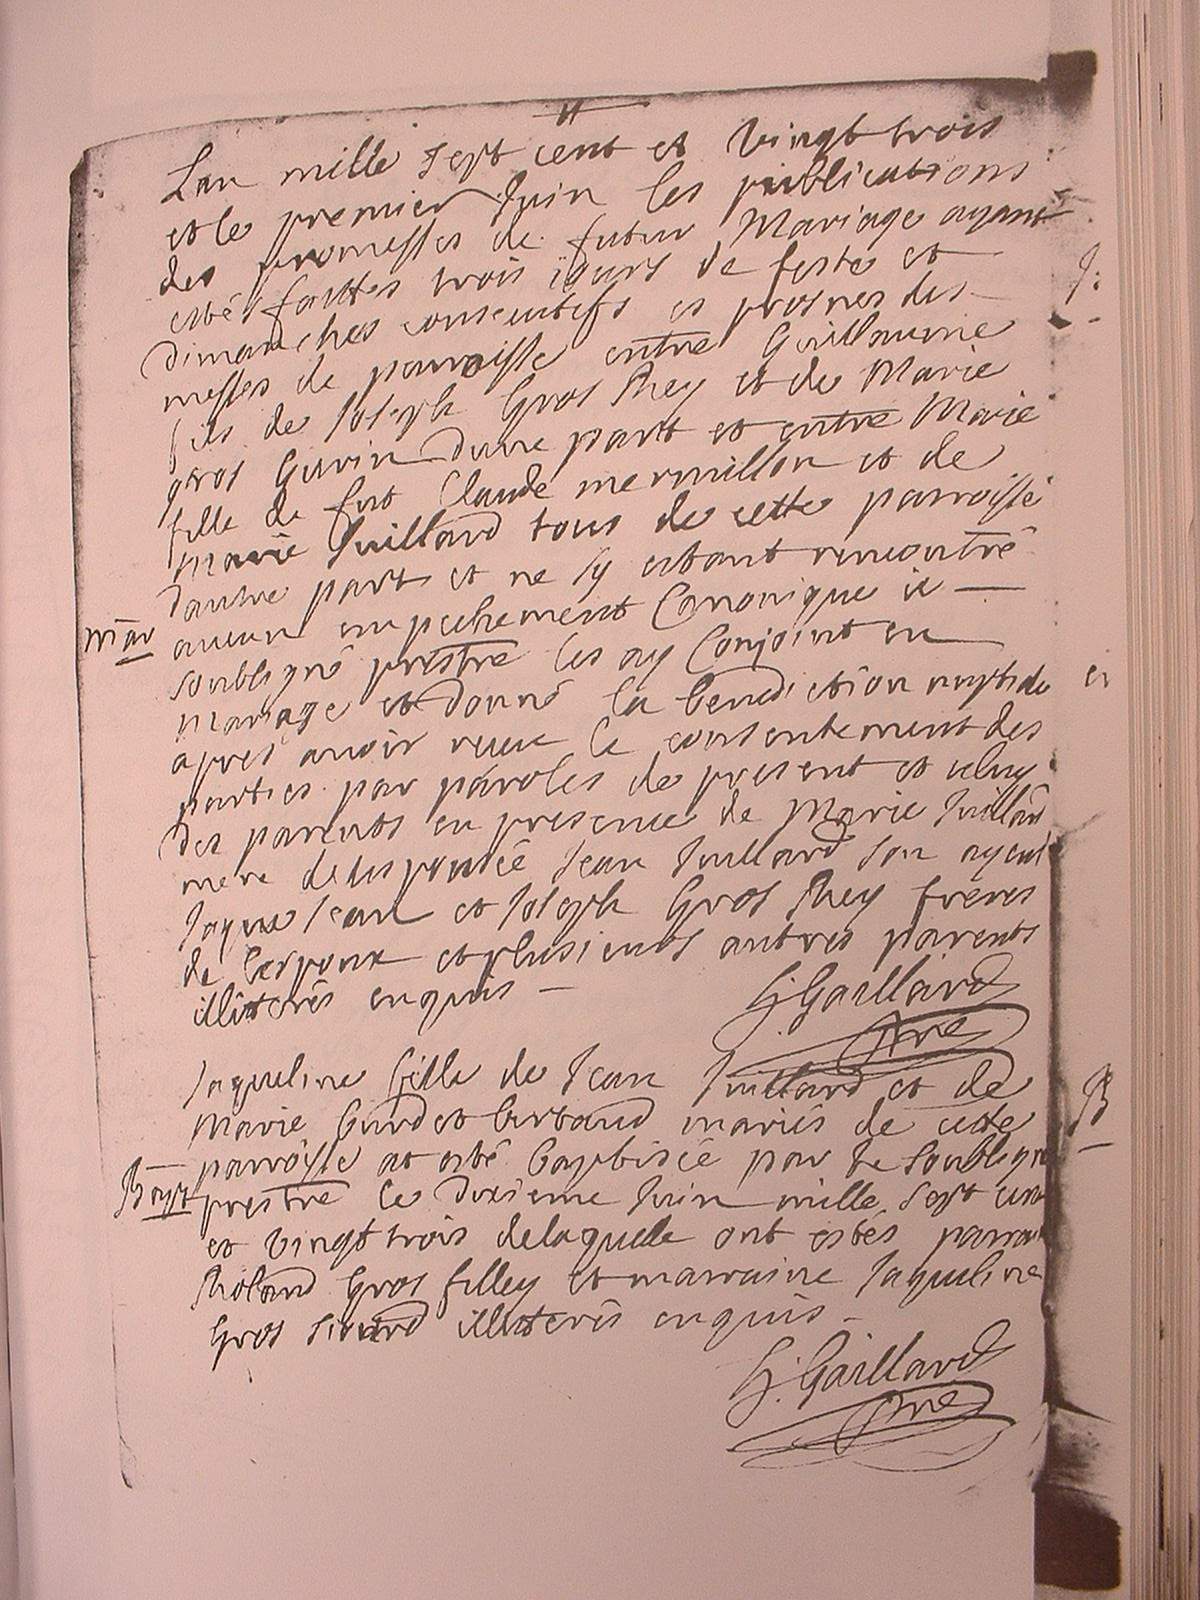 Lan mille sept cent et vingt trois
et le premier Juin les publications
des promesses de futur Mariage ayant
esté faittes trois jours de feste et
dimanches consecutifs es prosnes des
messes de parroisse entre Guillaume
fils de Joseph Gros Rey et de Marie
gros Gurin dune part et entre Marie
fille de fut Claude mermillon et de
Marie Juillard tous de cette parroisse
dautre part et ne sy estant rencontré
mar
aucun empechement Canonique je
soubsigné prestre les ay Conjoint en
mariage et donné la benediction nuptiale
apres avoir receu le consentement des
parties par paroles de present et celuy
des parents en presence de Marie Juillard
mere de lespousée Jean Juillard son ayeul
Jaques Jean et Joseph Gros Rey freres
de lespoux et plusieurs autres parents
illiterés enquis
G. Gaillard
pre
Jaqueline fille de Jean Juillard et de
Marie mariés de cette
parroisse at esté baptisée par le soubsigné
Bapt
prestre ce dixieme Juin mille sept cent
et vingt trois delaquelle ont estés parrain
Roland Gros filley et marraine Jaqueline
Gros illiterés enquis
G. Gaillard
pre
B